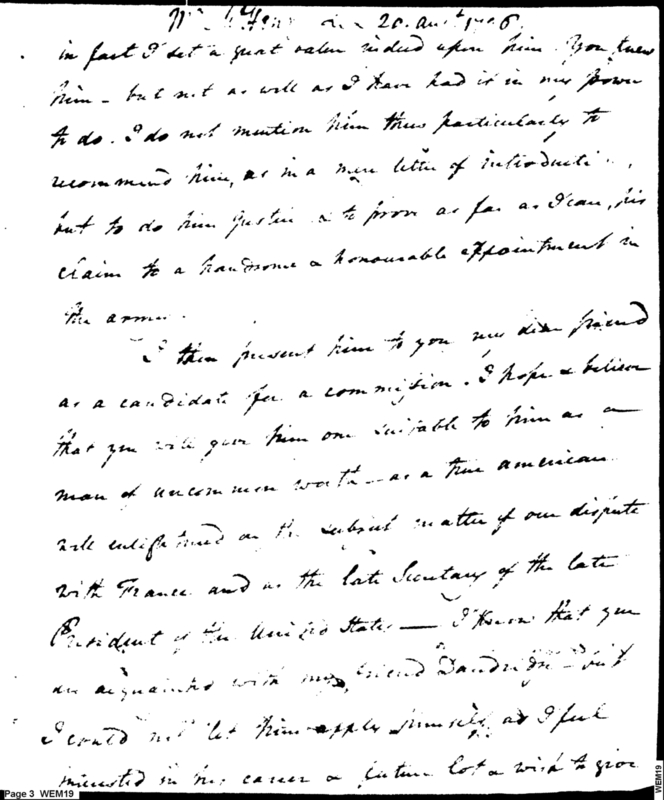 20. Augt
in fact I set a great value indeed upon him. You knew
him - but not as well as I have had it in my power
to do. I do not mention him thus particularly to
recommend him, as in a mere letter of introducti
but to do him justice & to prove as far as I can, his
claim to a handsome & honourable appointment in
the army.
I then present him to you my dear friend
as a candidate for a commission. I hope & believe
that you will give him one suitable to him as a
man of uncommon worth - as a true american
well enlightened on the subject matter of our dispute
with France and as the late Secretary of the late
President of the United States — I know that you
are acquainted with my friend Dandridge - but
I could not let him apply himself, as I feel
interested in his career & future lot & wish to give
Page 3 WEM19
WEM19